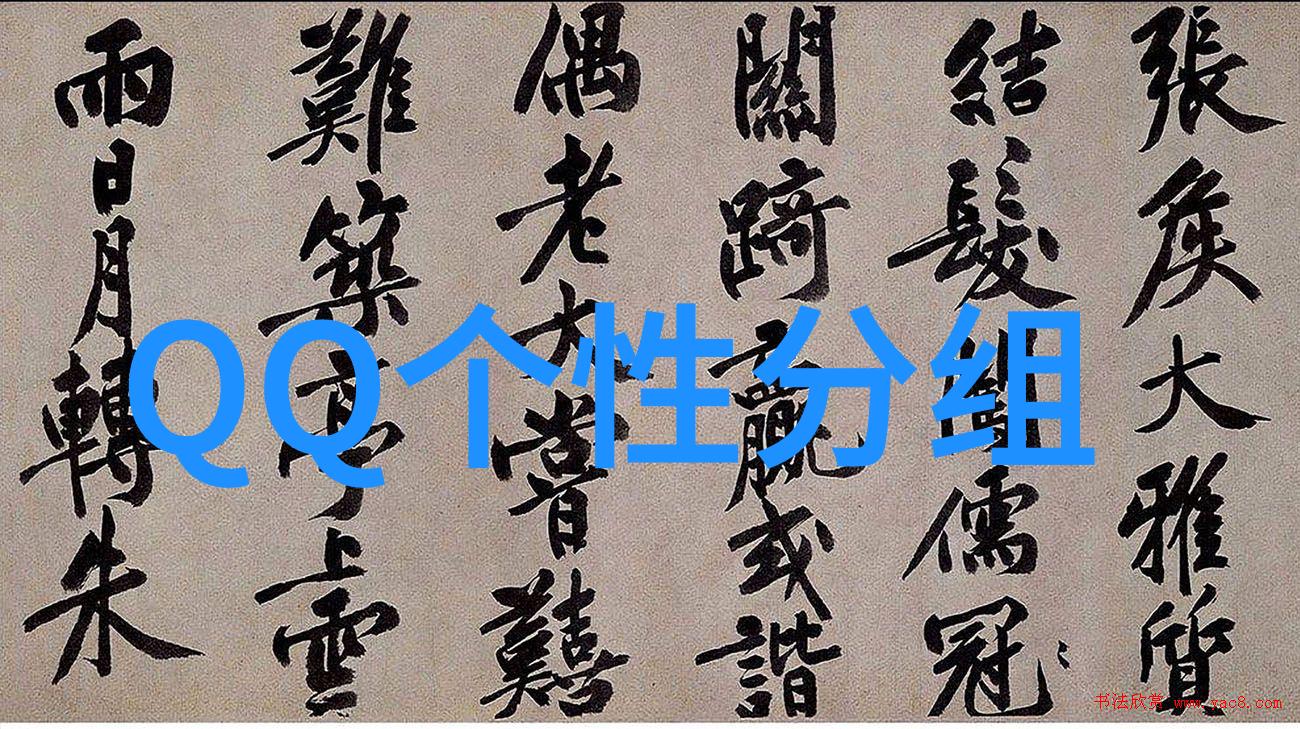 張矦大雅質
結髮儒冠
關踦贏或諧
偶老大嘗囏
難築亭上雲
雨日月轉朱
QQ个性分组
书法欣赏 www.yac8.com